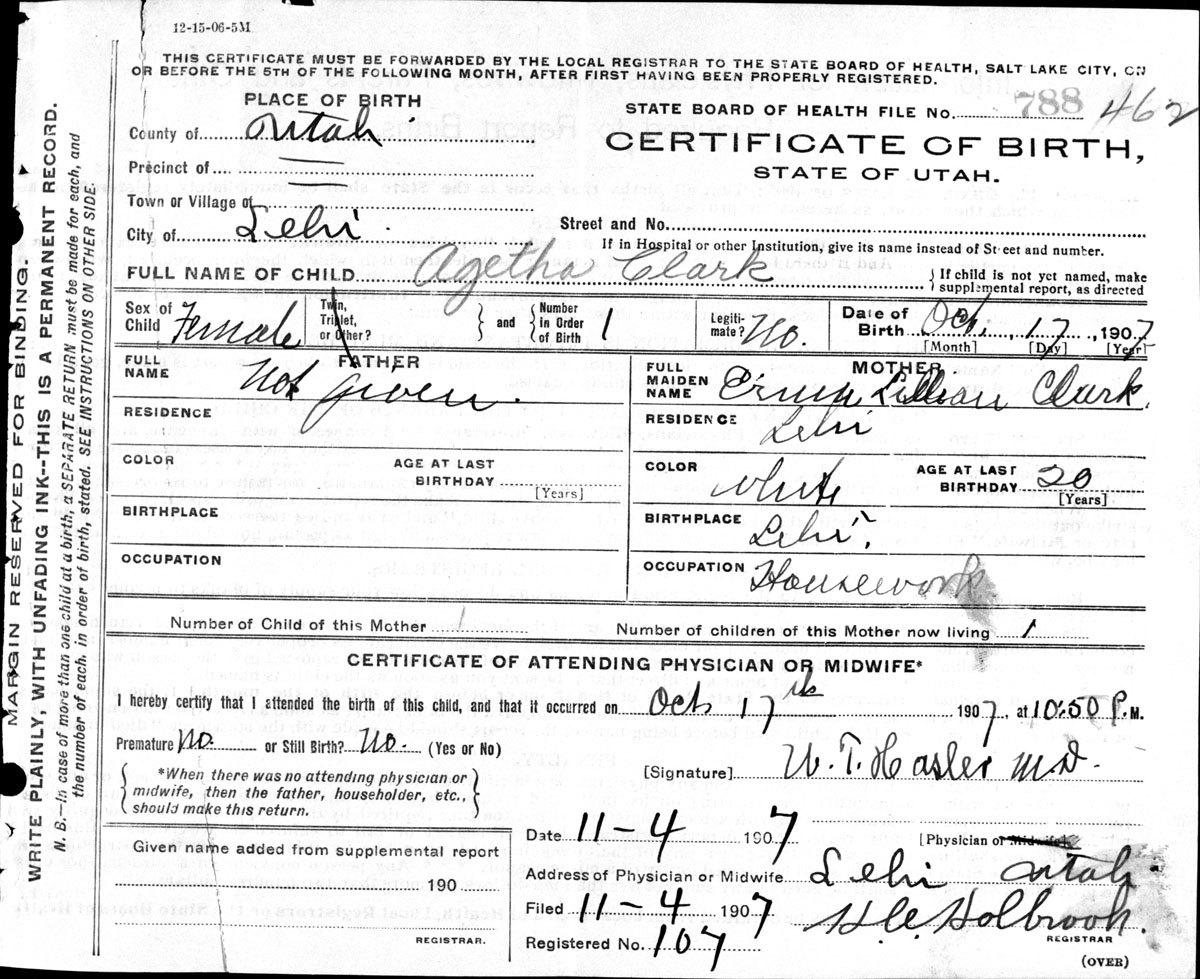 12-15-06-5M
THIS CERTIFICATE MUST BE FORWARDED BY THE LOCAL REGISTRAR TO THE STATE BOARD OF HEALTH, SALT LAKE CITY, ON
OR BEFORE THE 5TH OF THE FOLLOWING MONTH, AFTER FIRST HAVING BEEN PROPERLY REGISTERED.
PLACE OF BIRTH
STATE BOARD OF HEALTH FILE No. 788 462
County of Utah
CERTIFICATE OF BIRTH,
STATE OF UTAH.
Precinct of
Town or Village of
City of Lehi.
Street and No.
If in Hospital or other Institution, give its name instead of Street and number.
FULL NAME OF CHILD Agetha Clark
{ If child is not yet named, make
supplemental report, as directed
Sex of Child Female
Twin, Triplet, or Other? } and { Number in Order of Birth 1
Legiti-mate? No.
Date of Birth Oct. 17, 1907
[Month] [Day] [Year]
FATHER
FULL NAME Not given.
RESIDENCE
COLOR
AGE AT LAST BIRTHDAY [Years]
BIRTHPLACE
OCCUPATION
MOTHER
FULL MAIDEN NAME Lillian Clark.
RESIDENCE Lehi
COLOR White
AGE AT LAST BIRTHDAY 20 [Years]
BIRTHPLACE Lehi.
OCCUPATION Housework
Number of Child of this Mother 1
Number of children of this Mother now living 1
CERTIFICATE OF ATTENDING PHYSICIAN OR MIDWIFE*
I hereby certify that I attended the birth of this child, and that it occurred on Oct 17th 1907, at 10:50 P.M.
Premature No. or Still Birth? No. (Yes or No)
{ *When there was no attending physician or
midwife, then the father, householder, etc.,
should make this return. }
[Signature] W. T. Hasler M.D.
[Physician or Midwife]
Date 11-4 1907
Given name added from supplemental report
190
REGISTRAR.
Address of Physician or Midwife Lehi Utah
Filed 11-4 1907 H.C. Holbrook.
REGISTRAR
Registered No. 107
(OVER)
MARGIN RESERVED FOR BINDING.
WRITE PLAINLY WITH UNFADING INK--THIS IS A PERMANENT RECORD.
N. B.—In case of more than one child at a birth, a SEPARATE RETURN must be made for each, and
the number of each, in order of birth, stated. SEE INSTRUCTIONS ON OTHER SIDE.